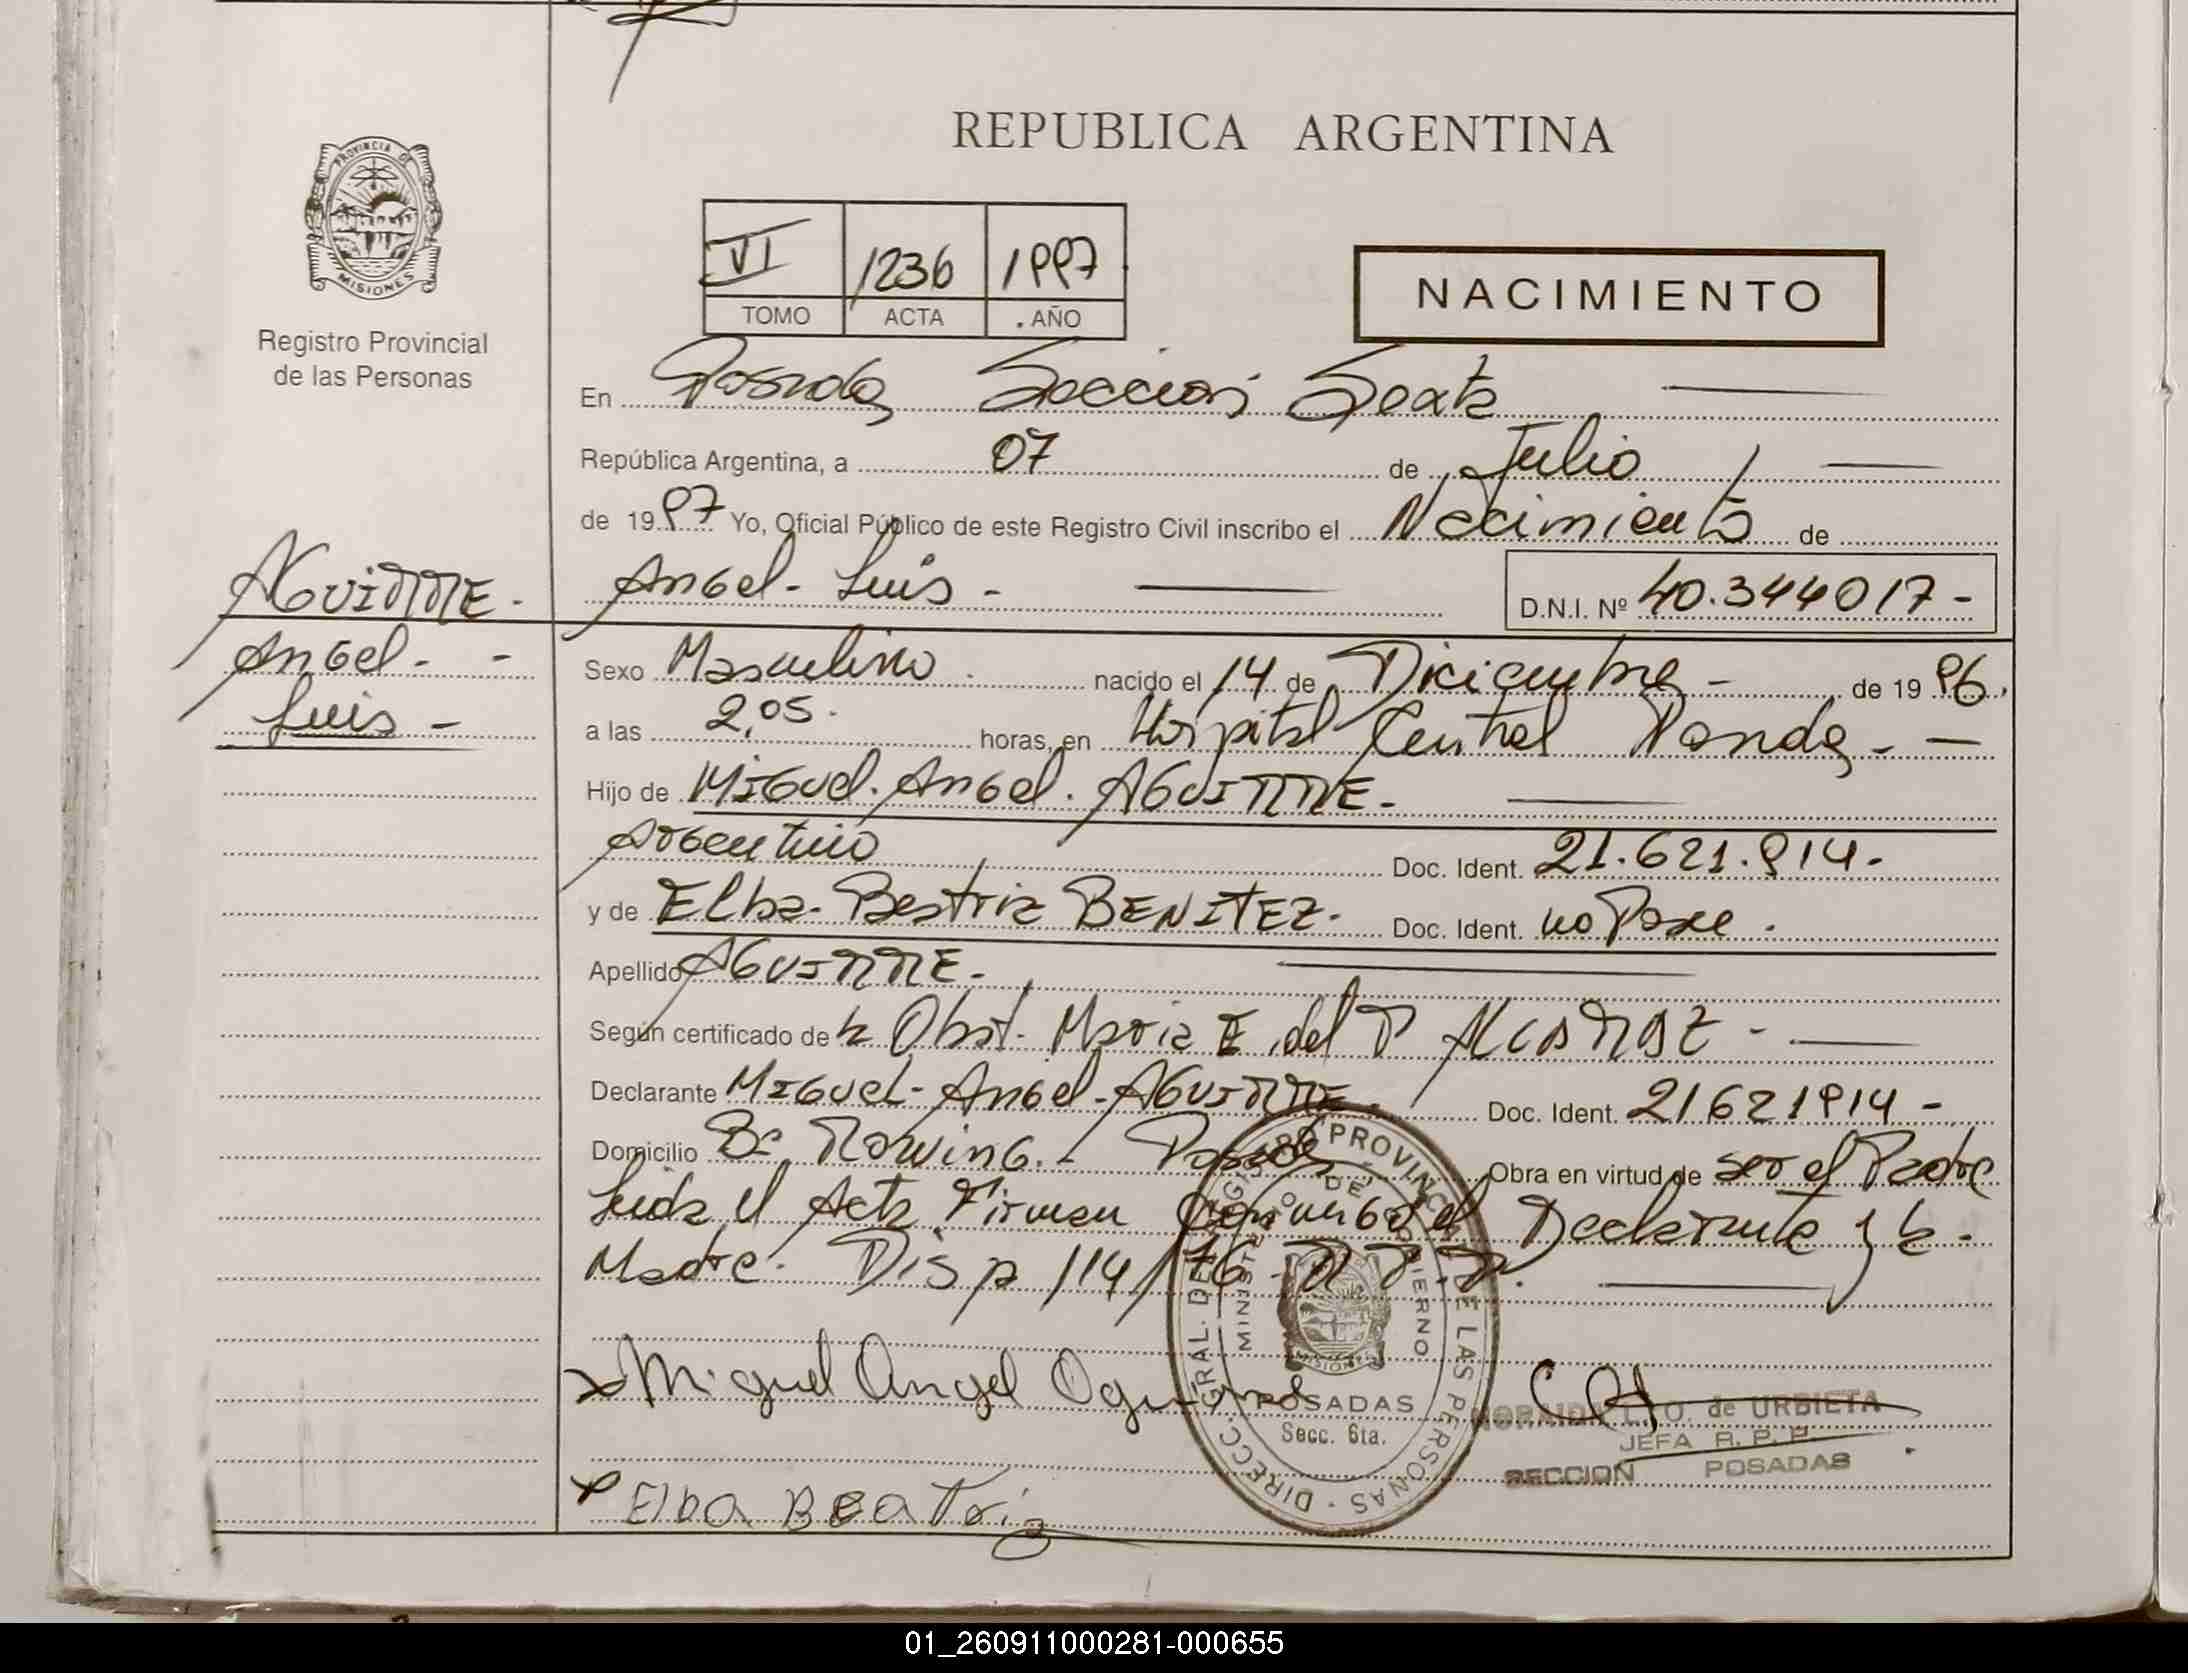 REPUBLICA ARGENTINA
PROVINCIA DE
MISIONES
Registro Provincial
de las Personas
VI 1236 1997
TOMO ACTA AÑO
NACIMIENTO
En Posadas Seccion Sexta
República Argentina, a 07 de Julio
de 1997 Yo, Oficial Público de este Registro Civil inscribo el Nacimiento de
AGUIRRE.
Angel - Luis - D.N.I. Nº 40.344017-
Angel - -
Luis -
Sexo Masculino nacido el 14 de Diciembre - de 1996.
a las 2,05. horas, en Hospital Central Posadas - -
Hijo de Miguel. Angel. AGUIRRE.
Argentino Doc. Ident. 21.621.914.
y de Elba. Beatriz BENITEZ. Doc. Ident. no Posee.
Apellido AGUIRRE.
Según certificado de la Obst. Maria E. del P ALCARAZ -
Declarante Miguel - Angel - AGUIRRE. Doc. Ident. 21621914 -
Domicilio Bº Rowing. - Posadas Obra en virtud de ser el Padre
Leida el Acta Firman Conmigo el Declarante y la -
Madre. Disp 114/76 - R.P.P.
Miguel Angel
Elba Beatriz
DIRECC. GRAL. DEL REGISTRO PROVINCIAL DE LAS PERSONAS
MINISTERIO DE GOBIERNO
MISIONES
POSADAS
Secc. 6ta.
de URBIETA
JEFA R. P. P.
SECCION POSADAS
01_260911000281-000655